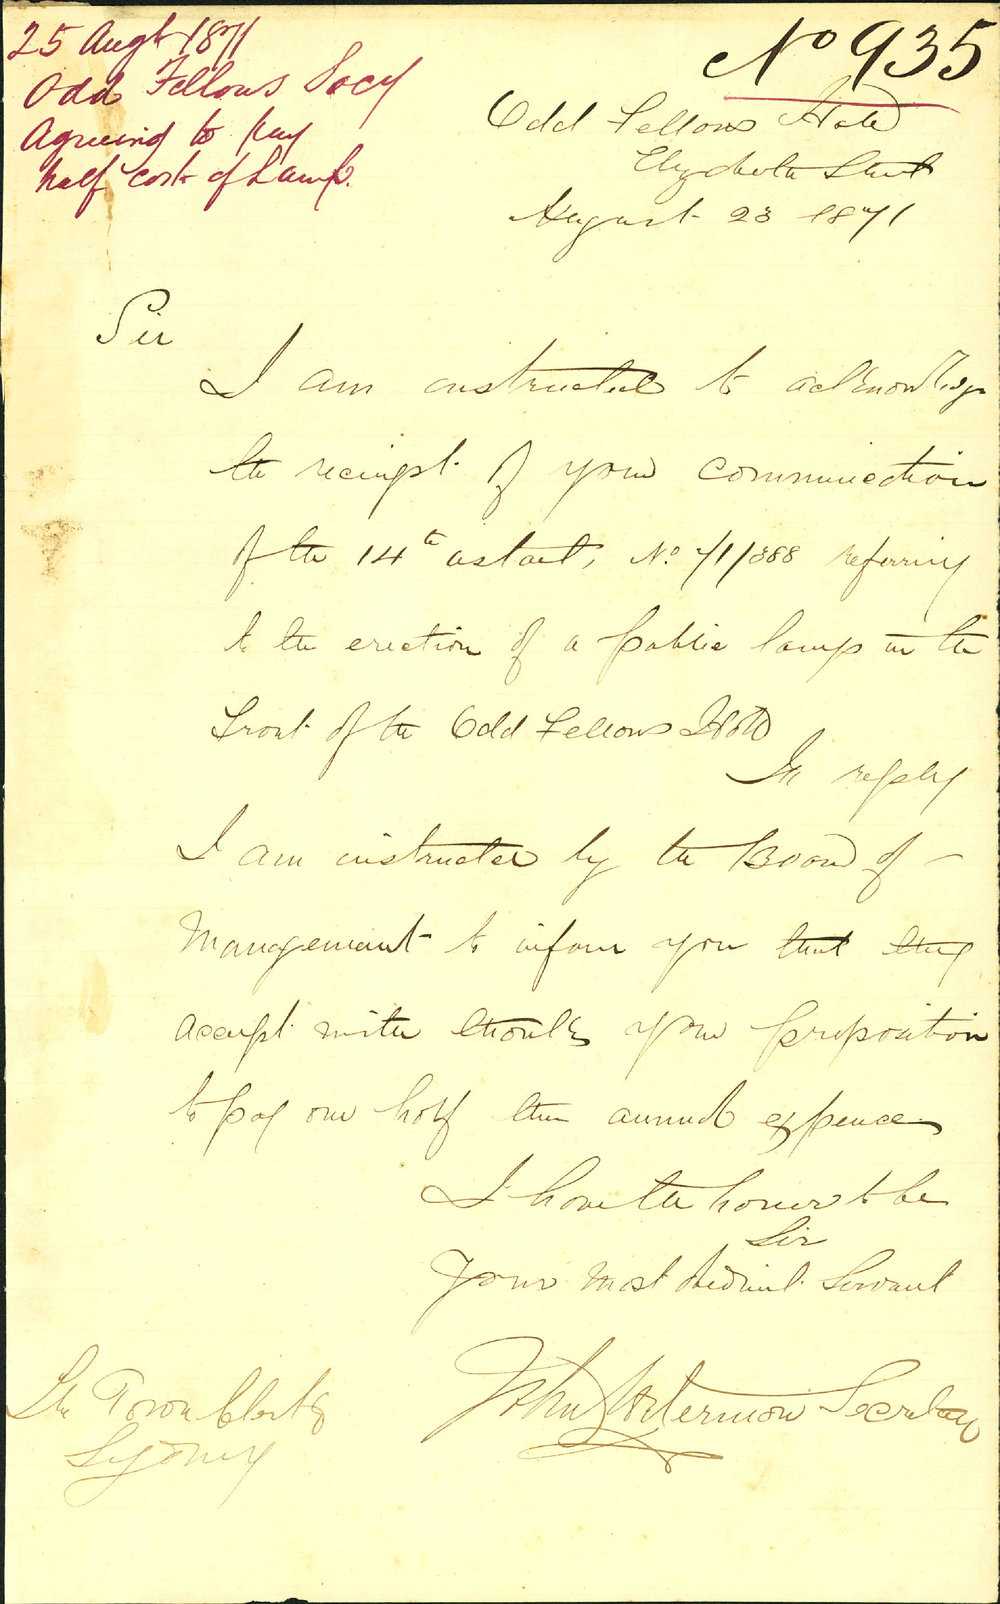 25 Augt 1871
Odd Fellows Socy
Agreeing to pay
half cost of Lamp.
No 935
Odd Fellows Hall
Elizabeth Street
August 23 1871
Sir
I am instructed to acknowledge
the receipt of your communication
of the 14th instant, No. 71/388 referring
to the erection of a public lamp in the
front of the Odd Fellows Hall
In reply
I am instructed by the Board of -
Management to inform you that they
accept with thanks your proposition
to pay one half the annual expences
I have the honor to be
Sir
Your most obedient Servant
John Secretary
The Town Clerk
Sydney